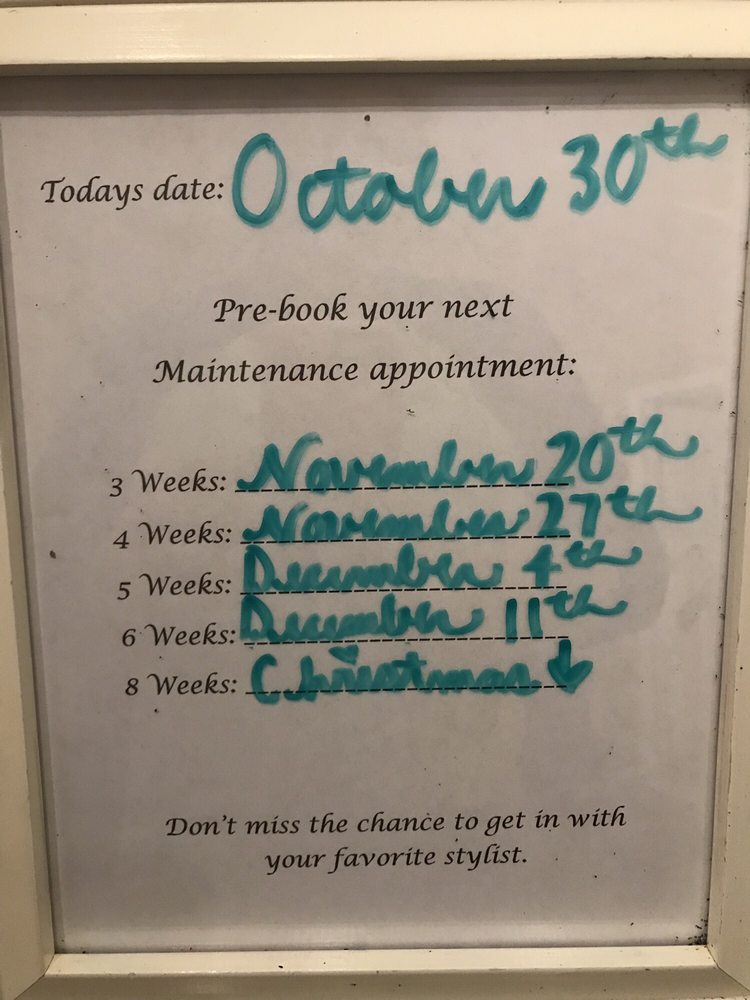 Todays date: October 30th
Pre-book your next
Maintenance appointment:
3 Weeks: November 20th
4 Weeks: November 27th
5 Weeks: December 4th
6 Weeks: December 11th
8 Weeks: Christmas
Don't miss the chance to get in with
your favorite stylist.